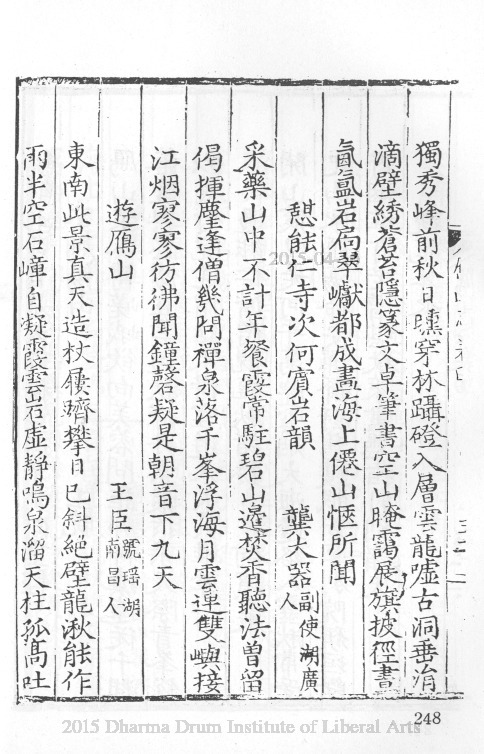 獨秀峰前秋日曛穿林躡磴入層雲龍噓古洞垂涓
滴壁綉蒼苔隱篆文卓筆書空山晻靄展旗披徑晝
氤氳岩扃翠巘都成畫海上僊山愜所聞
憇能仁寺次何賓岩韻 龔大器副使湖廣人
采藥山中不計年餐霞常駐碧山邊焚香聽法曽留
偈揮麈逢僧幾問禪泉落千峯浮海月雲連雙嶼接
江烟寥寥彷彿聞鐘磬疑是朝音下九天
遊鴈山 王臣號瑶湖南昌人
東南此景真天造杖屨躋攀日已斜絕壁龍湫能作
雨半空石嶂自凝霞雲岩虛靜鳴泉溜天柱孤高吐
2015-04-
248
2015 Dharma Drum Institute of Liberal Arts